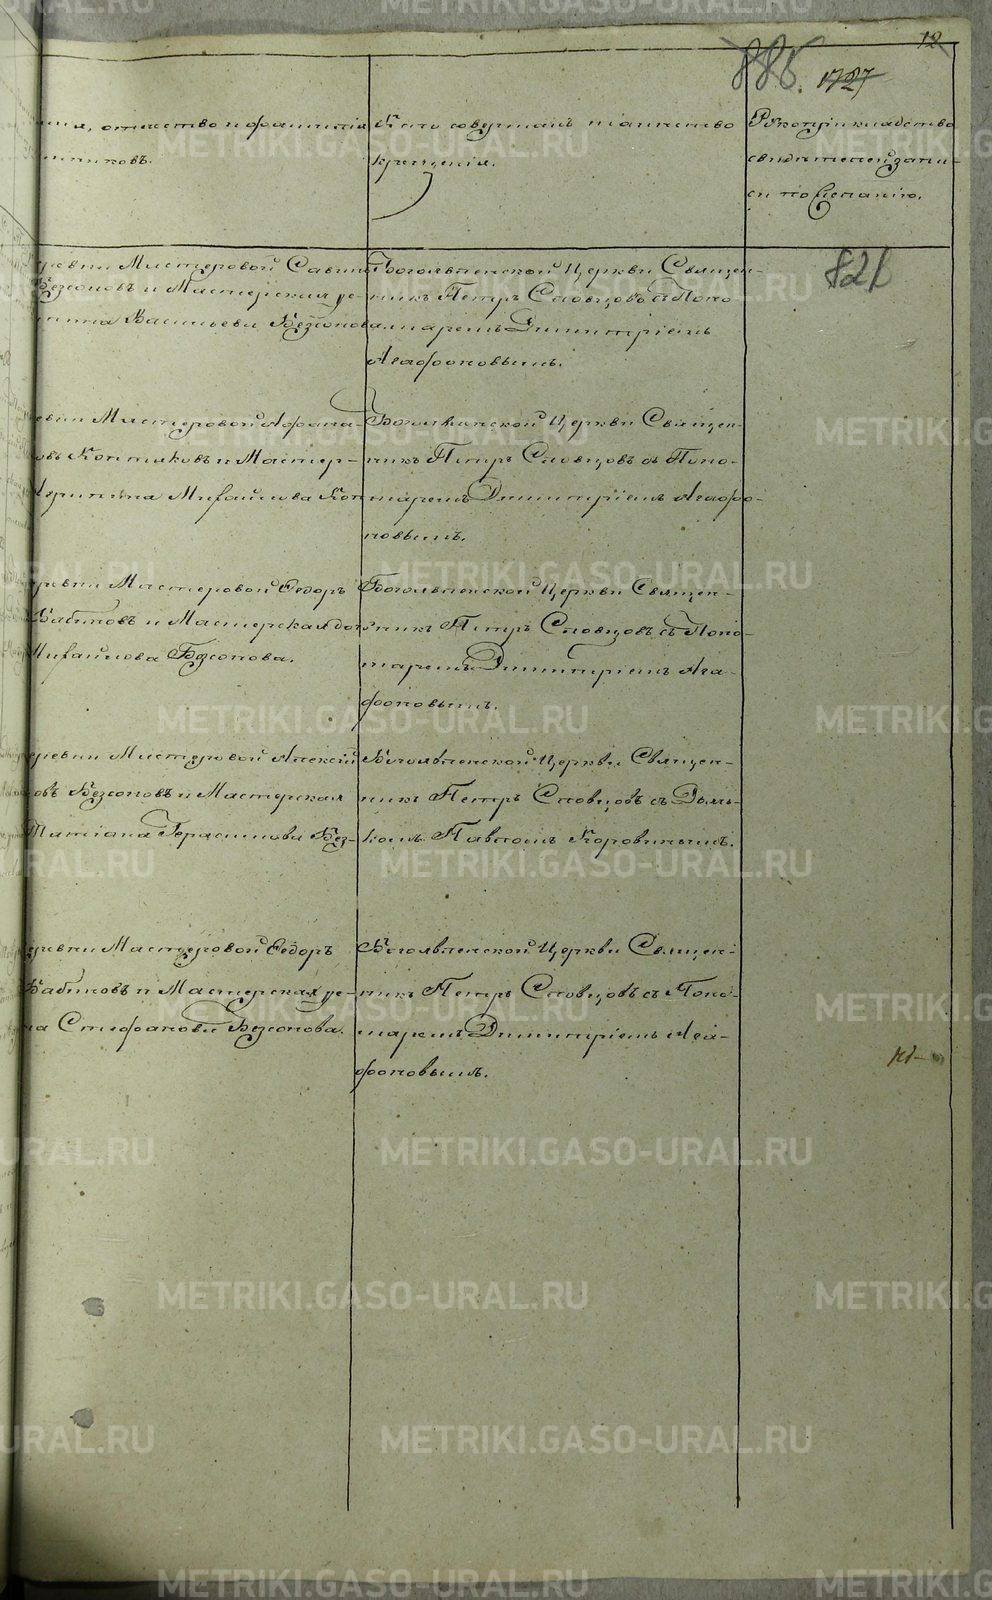 12
885. 1727
мия, отчество и фамилія
мниковъ.
Кто совершалъ таинство
крещенія.
Рукоприкладство
свидѣтелей запи-
си по желанію.
821
ревни Мастеровой Савин
Безсоновъ и Мастерская де-
Васильева Безсонова.
Богоявленской Церкви Священ-
никъ Петръ Словцовъ съ Поно-
маремъ Димитріемъ
Агафоновымъ.
евни Мастеровой Афана-
овъ и Мастер-
Михайлова Кон
Богоявленской Церкви Священ-
никъ Петръ Словцовъ съ Поно-
маремъ Димитріемъ Агафо-
новымъ.
ревни Мастеровой Ѳедоръ
Бабиновъ и Мастерская доч
Михайлова Безсонова.
Богоявленской Церкви Священ-
никъ Петръ Словцовъ съ Поно-
маремъ Димитріемъ Ага-
фоновымъ.
еревни Мастеровой Алексѣй
овъ Безсоновъ и Мастерская
Татіана Герасимова Без-
Богоявленской Церкви Священ-
никъ Петръ Словцовъ съ Дьяч-
комъ Павломъ Коровинымъ.
еревни Мастеровой Ѳедоръ
Бабиновъ и Мастерская де-
на Стефанова Безсонова.
Богоявленской Церкви Священ-
никъ Петръ Словцовъ съ Поно-
маремъ Димитріемъ Ага-
фоновымъ.
METRIKI.GASO-URAL.RU